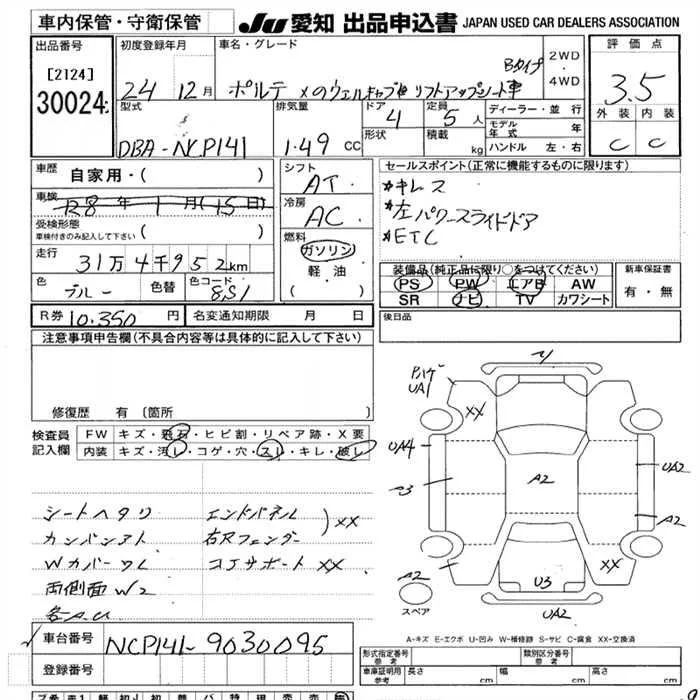 車内保管・守衛保管
JU 愛知 出品申込書 JAPAN USED CAR DEALERS ASSOCIATION
出品番号
[2124]
30024
初度登録年月
24 12月
車名・グレード
Bタイプ
ポルテ
リフトアップシート車
2WD
4WD
評価点
3.5
外装 内装
C C
型式
DBA-NCP141
排気量
1.49 CC
ドア
4
形状
定員
5人
積載
kg
ディーラー・並行
モデル年式 年
ハンドル 左・右
車歴
自家用・( )
車検
R8年 1月(15日)
受検形態
車検付きのみ記入して下さい ( )
走行
31万4千952km
色
ブルー
色替
色コード
8S1
シフト
AT
冷房
AC
燃料
ガソリン
軽油
セールスポイント(正常に機能するものに限ります)
*キレス
*左パワースライドドア
*ETC
装備品(純正品に限り○をつけてください)
PS PW エアB AW
SR ナビ TV カワシート
新車保証書
有・無
R券 10.350円
名変通知期限 月 日
後日品
注意事項申告欄(不具合内容等は具体的に記入して下さい)
修復歴 有 〔箇所
検査員記入欄
FW キズ・飛石・ヒビ割・リペア跡・X要
内装 キズ・汚レ・コゲ・穴・スレ・キレ・破レ
シートヘタリ
カンバンアト
Wカバーワレ
両側面W2
各A.U
エンドパネル
右Rフェンダー
)XX
コアサポート XX
UA1
XX
UA4
A2
UA2
A2
XX
A2
U3
UA2
スペア
A-キズ E-エクボ U-凹み W-補修跡 S-サビ C-腐食 XX-交換済
車台番号
NCP141-9030095
登録番号
形式指定番号
参考
類別区分番号
参考
車庫証明用
参考
長さ cm
幅 cm
高さ cm